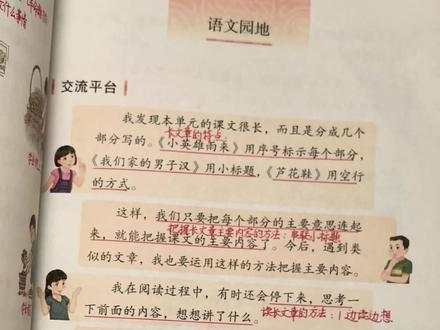 语文园地
交流平台
我发现本单元的课文很长，而且是分成几个
长文章的特点
部分写的。《小英雄雨来》用序号标示每个部分，
《我们家的男子汉》用小标题，《芦花鞋》用空行
的方式。
这样，我们只要把每个部分的主要意思连起
把握长文章主要内容的方法：串联小标题
来，就能把握课文的主要内容了。今后，遇到类
似的文章，我也要运用这样的方法把握主要内容。
我在阅读过程中，有时还会停下来，思考一
下前面的内容，想想讲了什么。
读长文章的方法：1边读边想